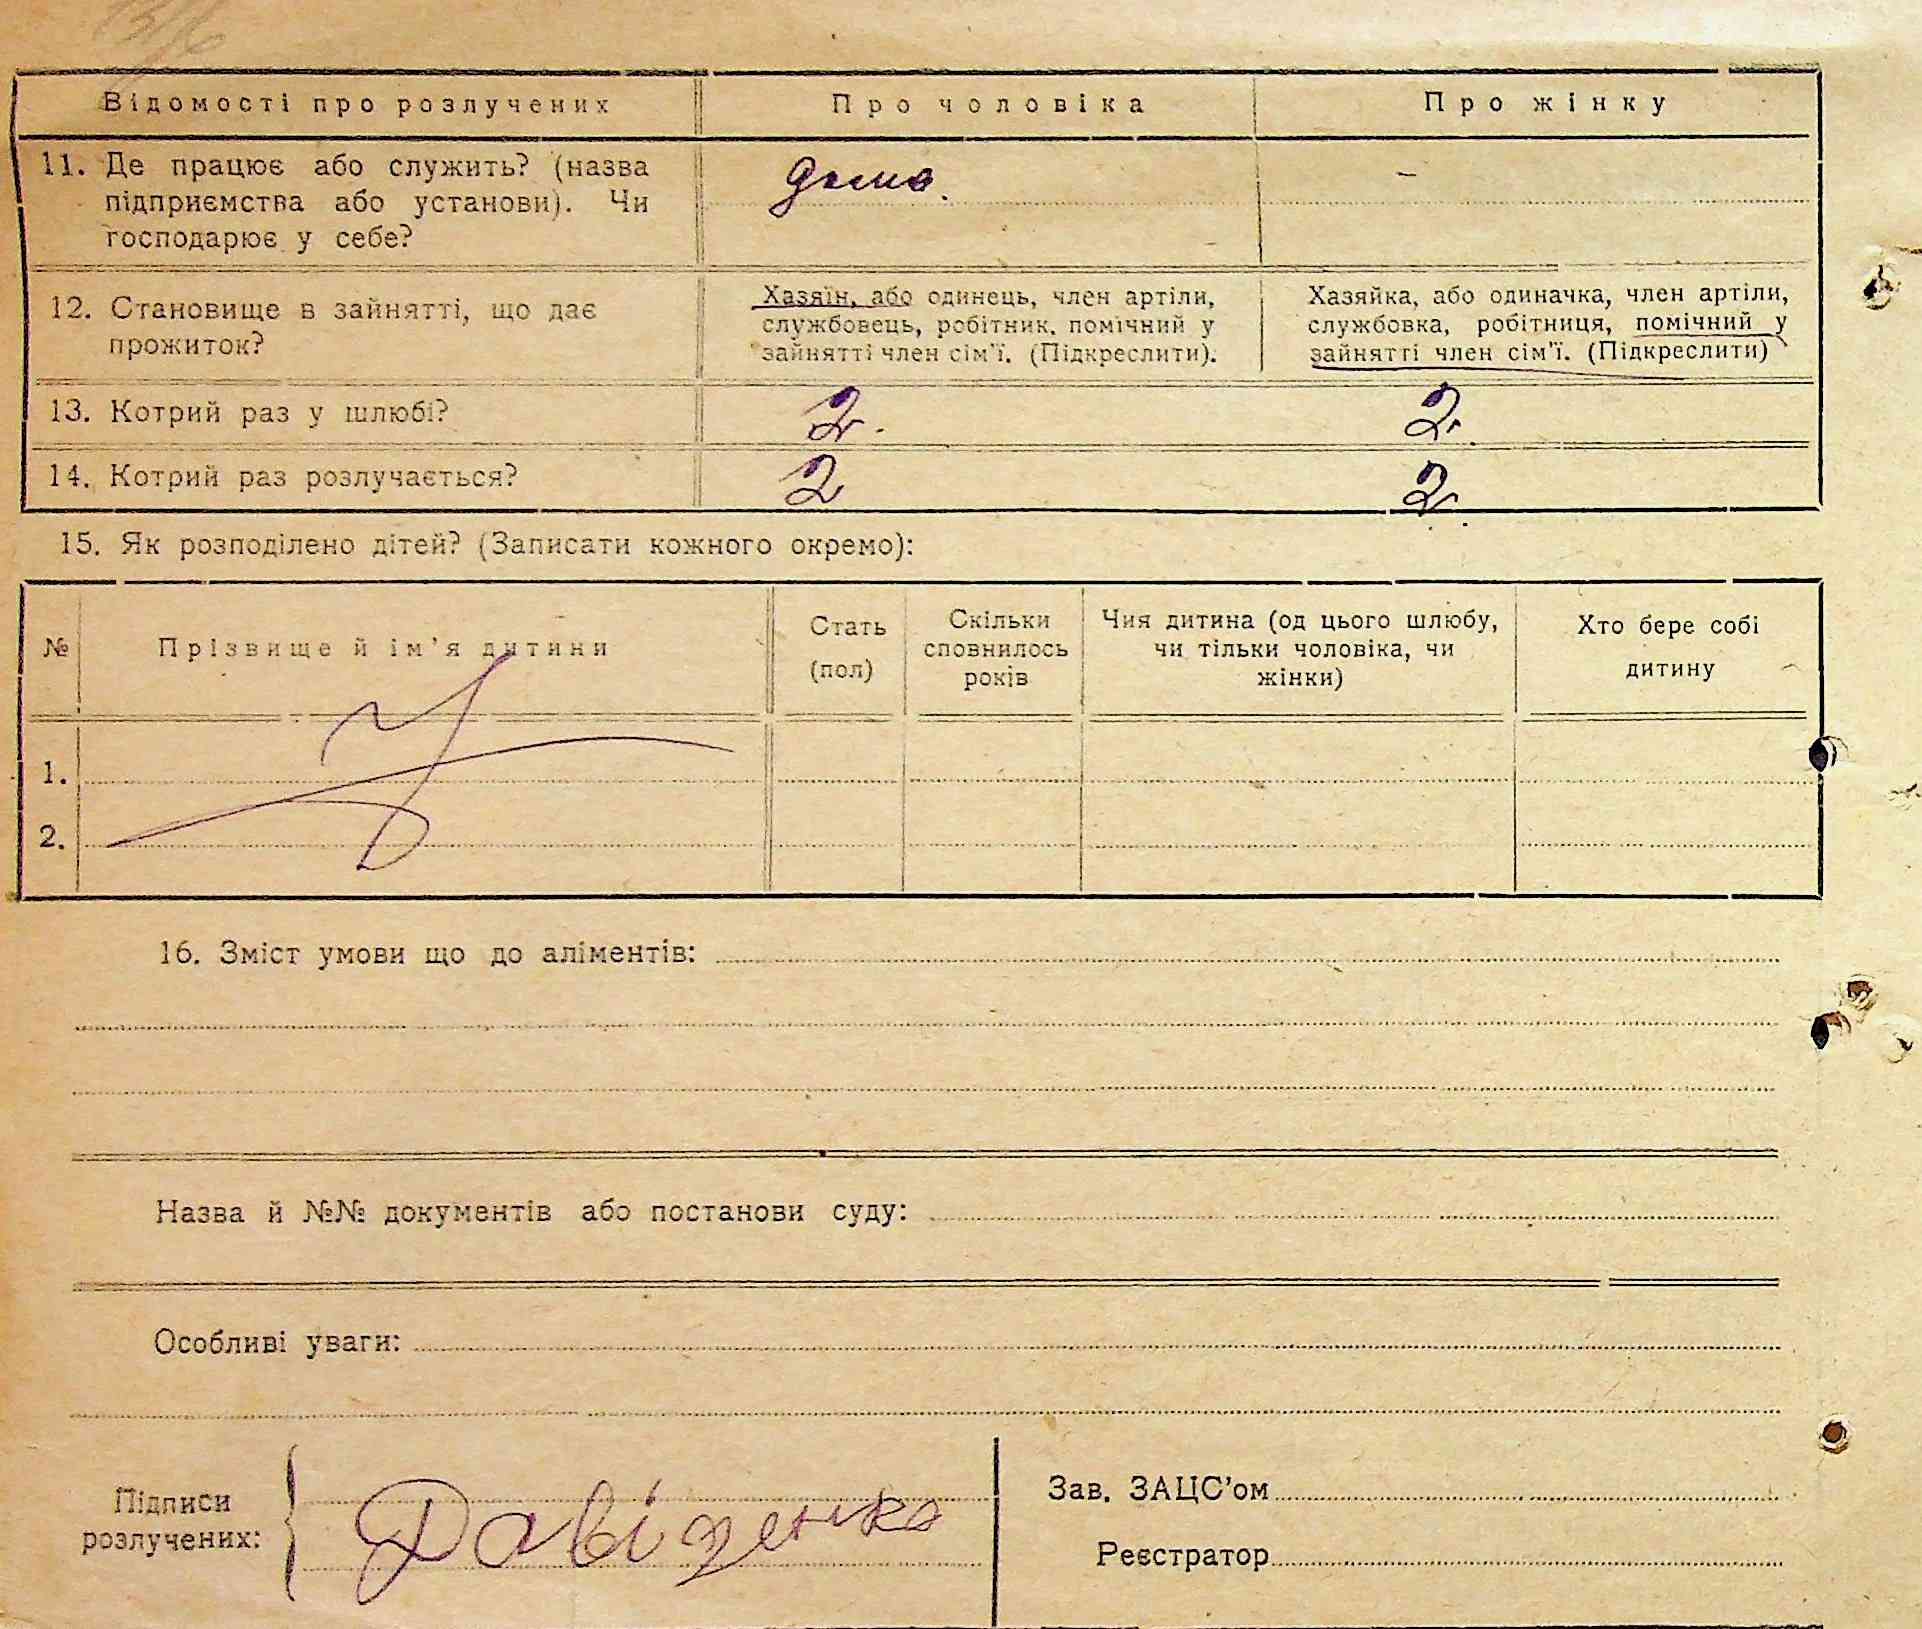 Відомості про розлучених Про чоловіка Про жінку
11. Де працює або служить? (назва підприємства або установи). Чи господарює у себе?
дома. –
12. Становище в зайнятті, що дає прожиток?
Хазяїн, або одинець, член артіли,
службовець, робітник, помічний у
зайнятті член сім'ї. (Підкреслити).
Хазяйка, або одиначка, член артіли,
службовка, робітниця, помічний у
зайнятті член сім'ї. (Підкреслити)
13. Котрий раз у шлюбі? 2. 2.
14. Котрий раз розлучається? 2 2.
15. Як розподілено дітей? (Записати кожного окремо):
№
Прізвище й ім'я дитини
Стать
(пол)
Скільки
сповнилось
років
Чия дитина (од цього шлюбу,
чи тільки чоловіка, чи
жінки)
Хто бере собі
дитину
1.
2.
16. Зміст умови що до аліментів:
Назва й №№ документів або постанови суду:
Особливі уваги:
Підписи
розлучених:
Давіденко
Зав. ЗАЦС'ом
Реєстратор